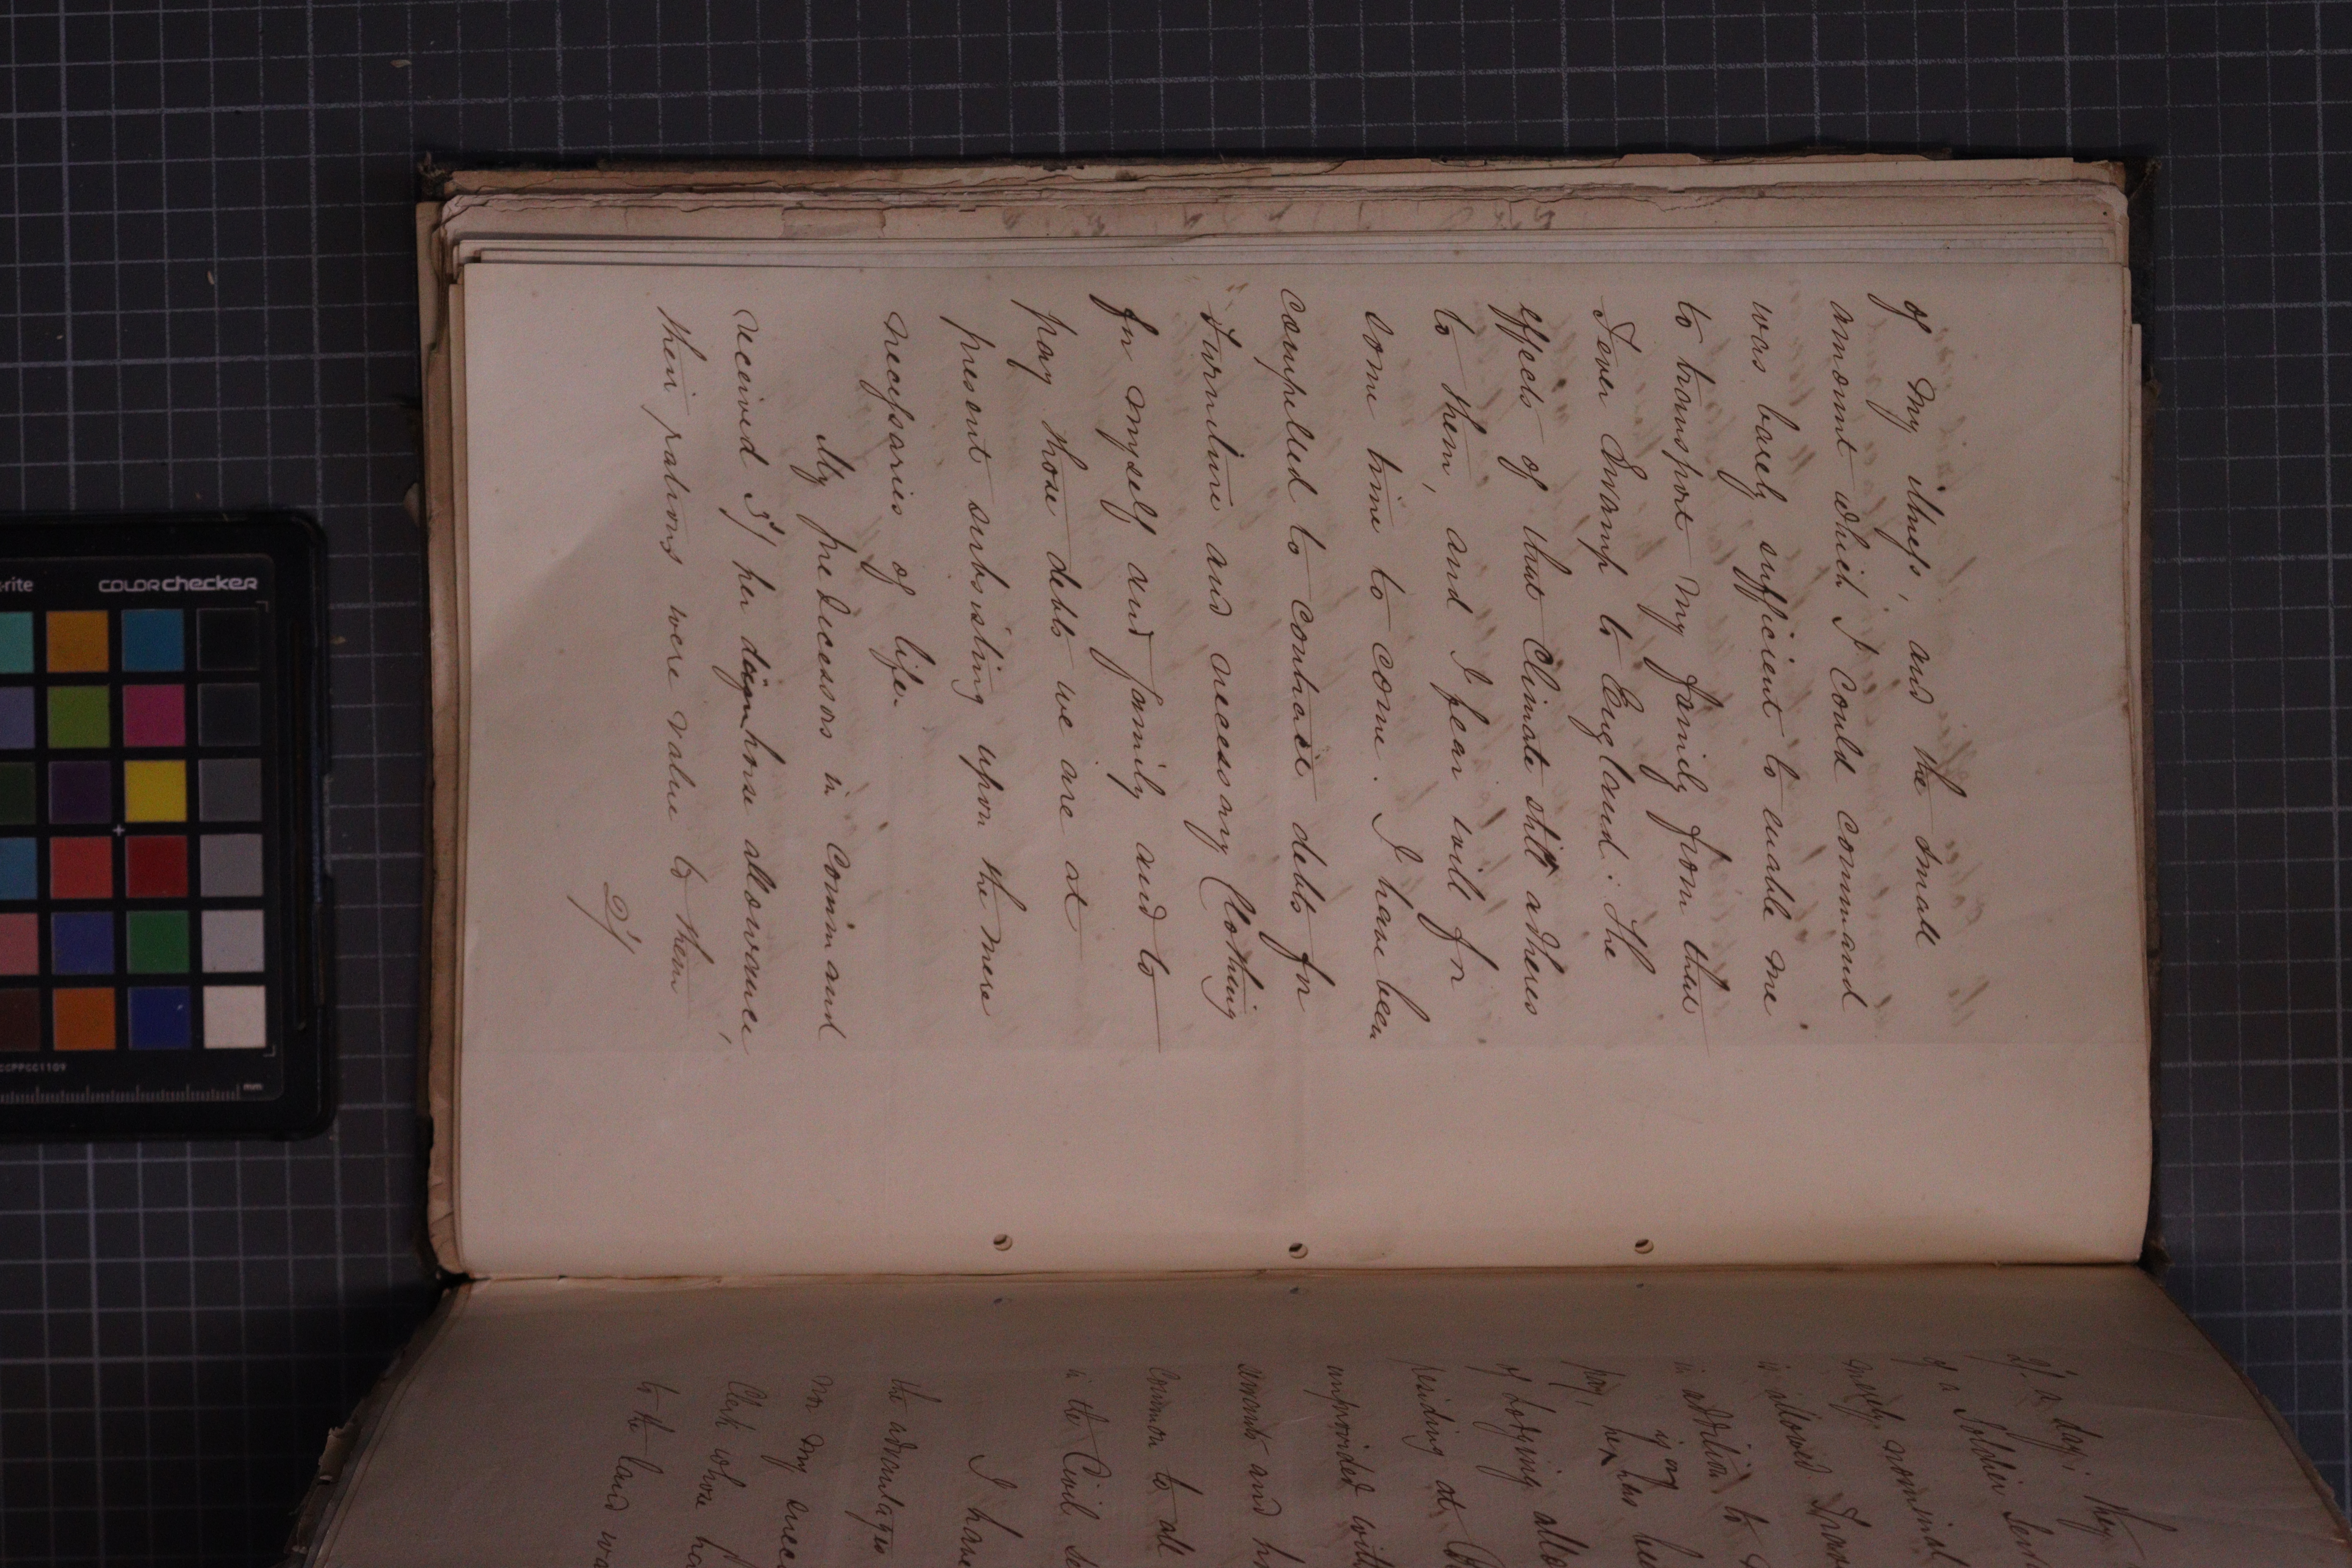 of my illness, and the small
amount which I could command
was barely sufficient to enable me
to transport my family from that
Fever Swamp to England. The
effects of that Climate still adheres
to them, and I fear will for
some time to come. I have been
compelled to contract debts for
Furniture and necessary Clothing
for myself and family and to
pay those debts we are at
present subsisting upon the mere
necessaries of life.
My predecessors in Command
received 3/ per diem house allowance,
their rations were value to them
2/
2/ a day; they
of a Soldier Serv
merely nominal
is allowed
in addition to
if any
pay, he has
of Lodging all
residing at
unprovided with
servants and
common to all
in the Civil
I have
the advantages
nor my
Clerk whose
to the land
X-rite
COLORchecker
mm